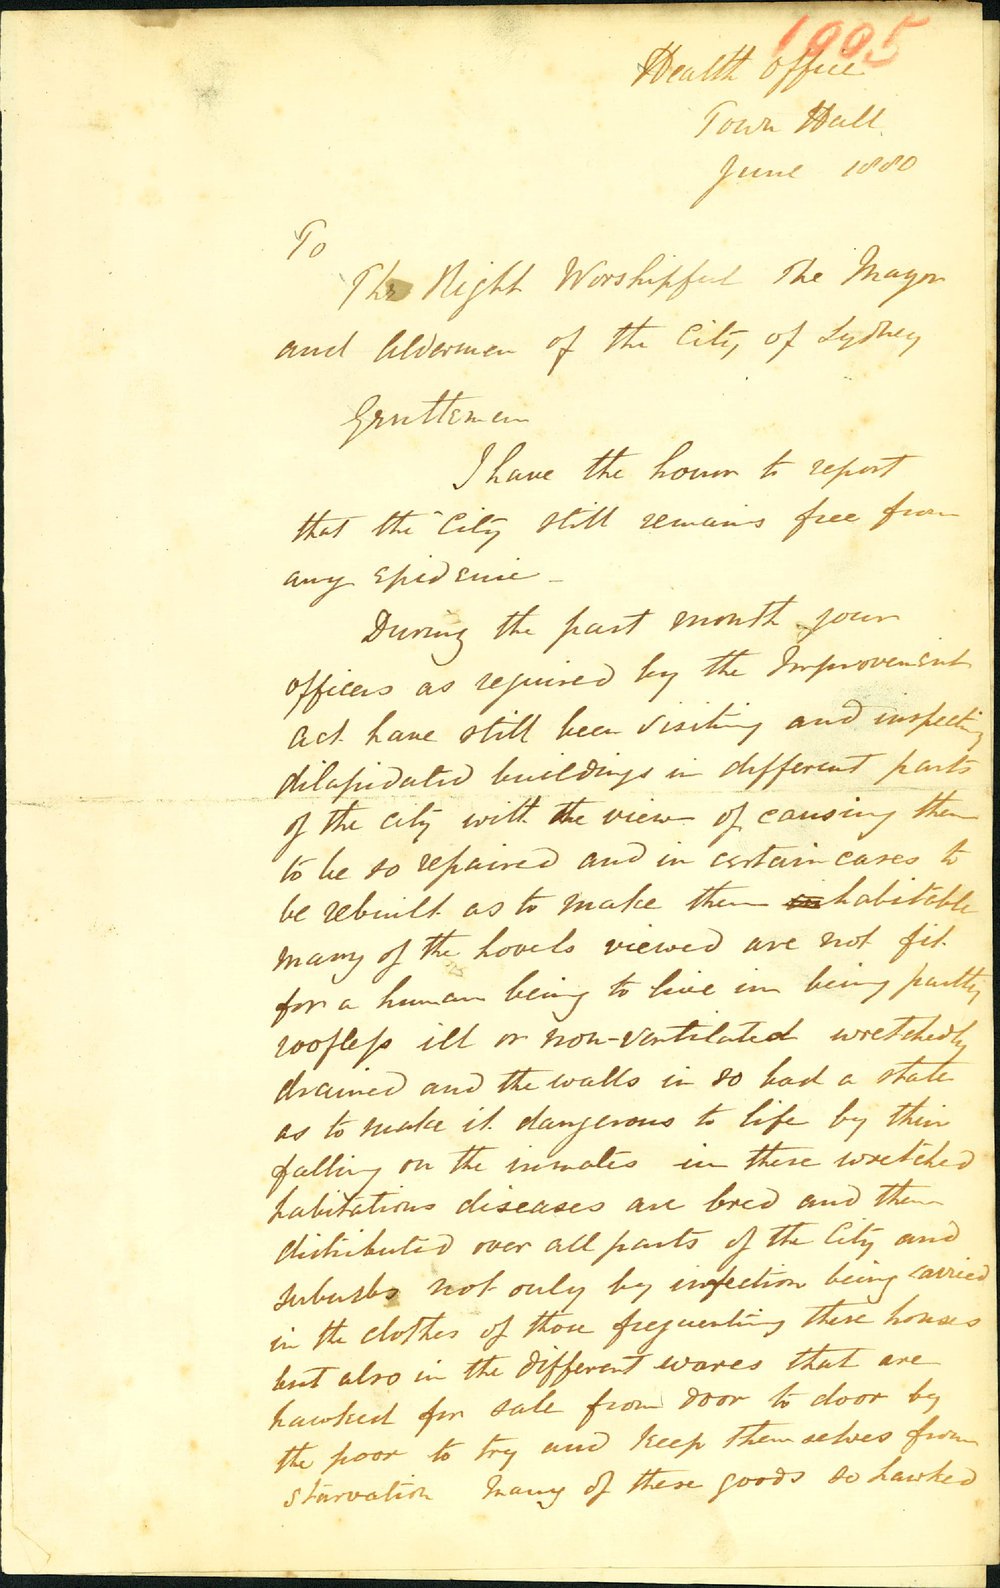 1005
Health Office
Town Hall
June 1880
To
The Right Worshipful The Mayor
and Aldermen of the City of Sydney
Gentlemen
I have the honor to report
that the City still remains free from
any Epidemic -
During the past month your
officers as required by the Improvement
Act have still been visiting and inspecting
dilapidated buildings in different parts
of the city with the view of causing them
to be so repaired and in certain cases to
be rebuilt as to make them habitable
many of the hovels viewed are not fit
for a human being to live in being partly
roofless ill or non-ventilated wretchedly
drained and the walls in so bad a state
as to make it dangerous to life by their
falling on the inmates in these wretched
habitations diseases are bred and then
distributed over all parts of the City and
suburbs not only by infection being carried
in the clothes of those frequenting these houses
but also in the different wares that are
hawked for sale from door to door by
the poor to try and keep themselves from
starvation Many of these goods so hawked